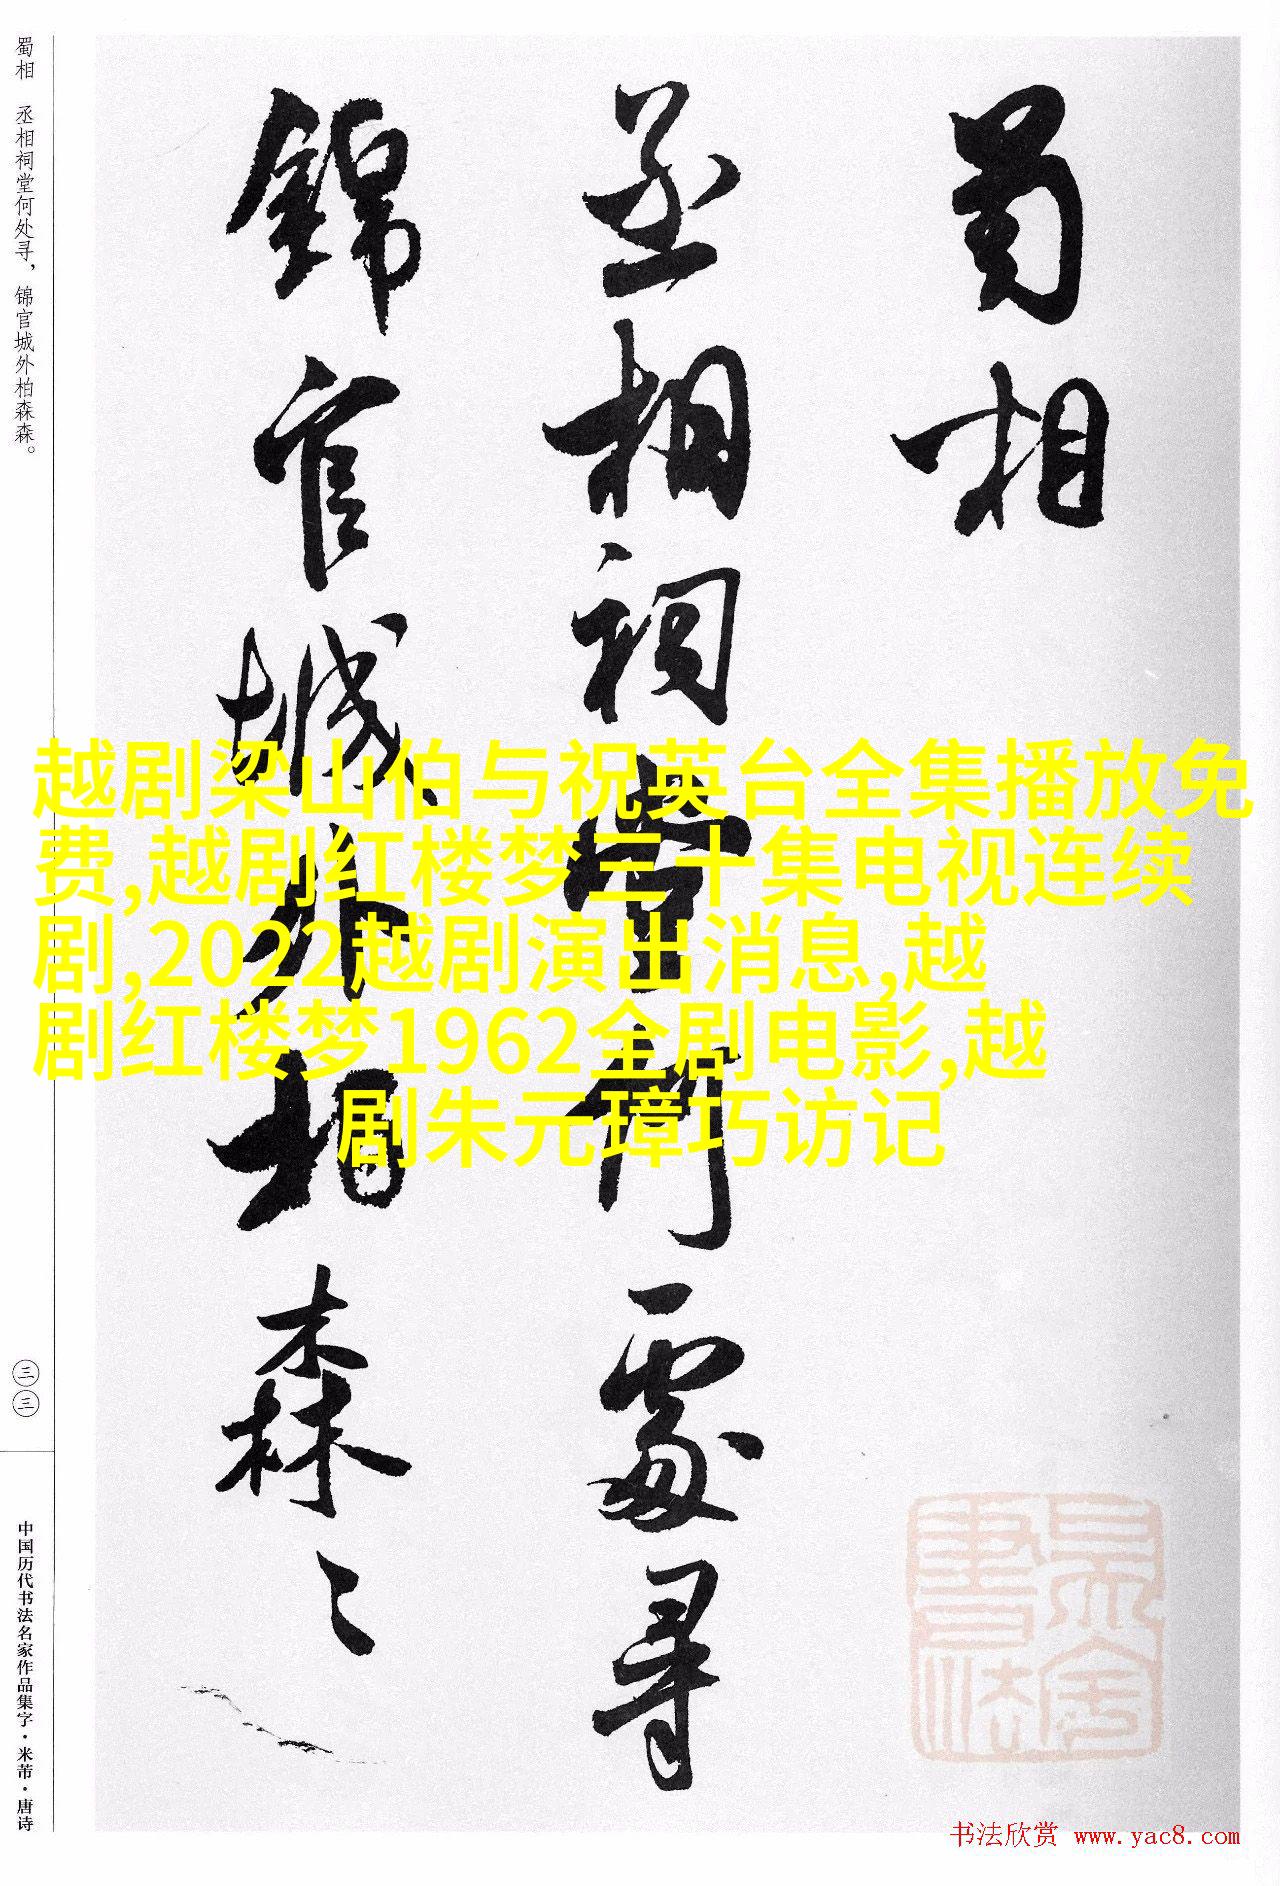 蜀相
丞相祠堂何處尋
錦官城外柏森〻
越剧梁山伯与祝英台全集播放免
费,越剧红楼梦三十集电视连续
剧,2022越剧演出消息,越
剧红楼梦1962全剧电影,越
剧朱元璋巧访记
蜀相　丞相祠堂何处寻，锦官城外柏森森。
三三
中国历代书法名家作品集字·米芾·唐诗
書法
书法欣赏 www.yac8.com